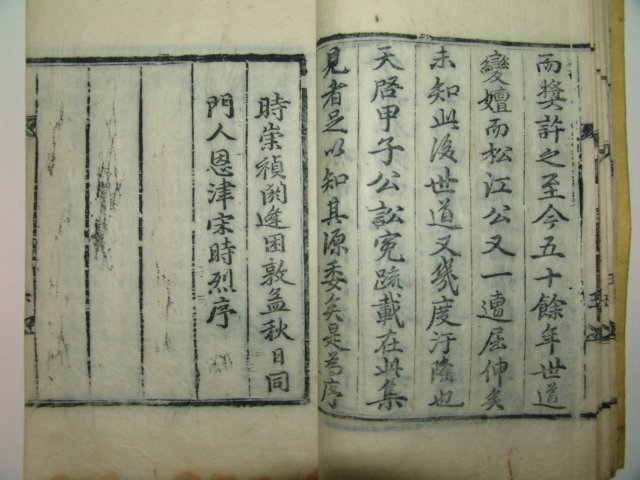 而獎許之至今五十餘年世道
變嬗而松江公又一遭屈伸矣
未知此後世道又幾度汙隆也
天啓甲子公訟寃疏載在此集
見者足以知其源委矣是爲序
時崇禎閼逢困敦孟秋日同
門人恩津宋時烈序